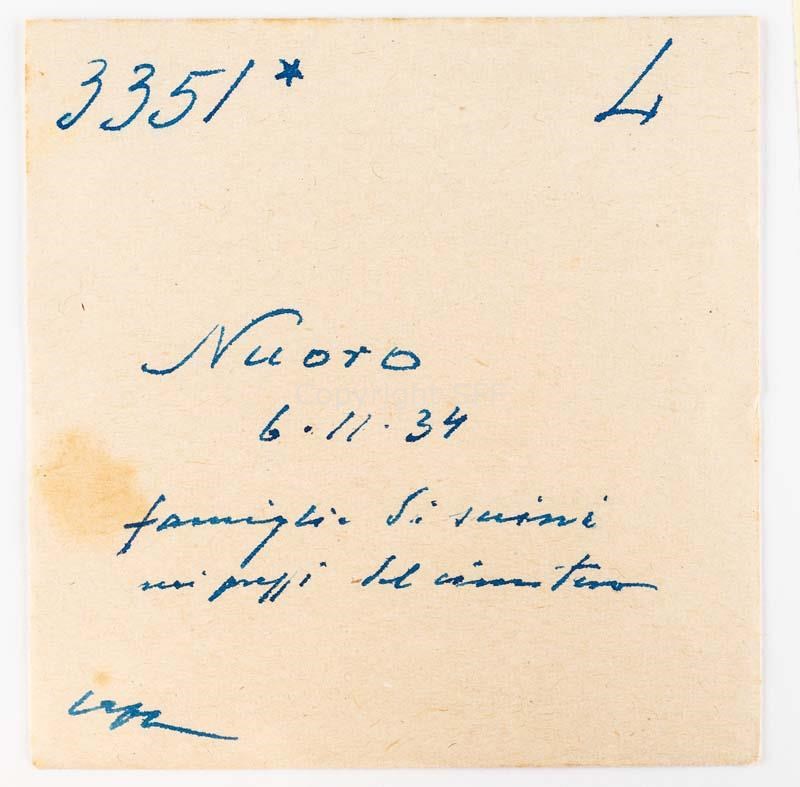 3351* L
Nuoro
6.11.34
famiglia di suini
nei pressi del cimitero